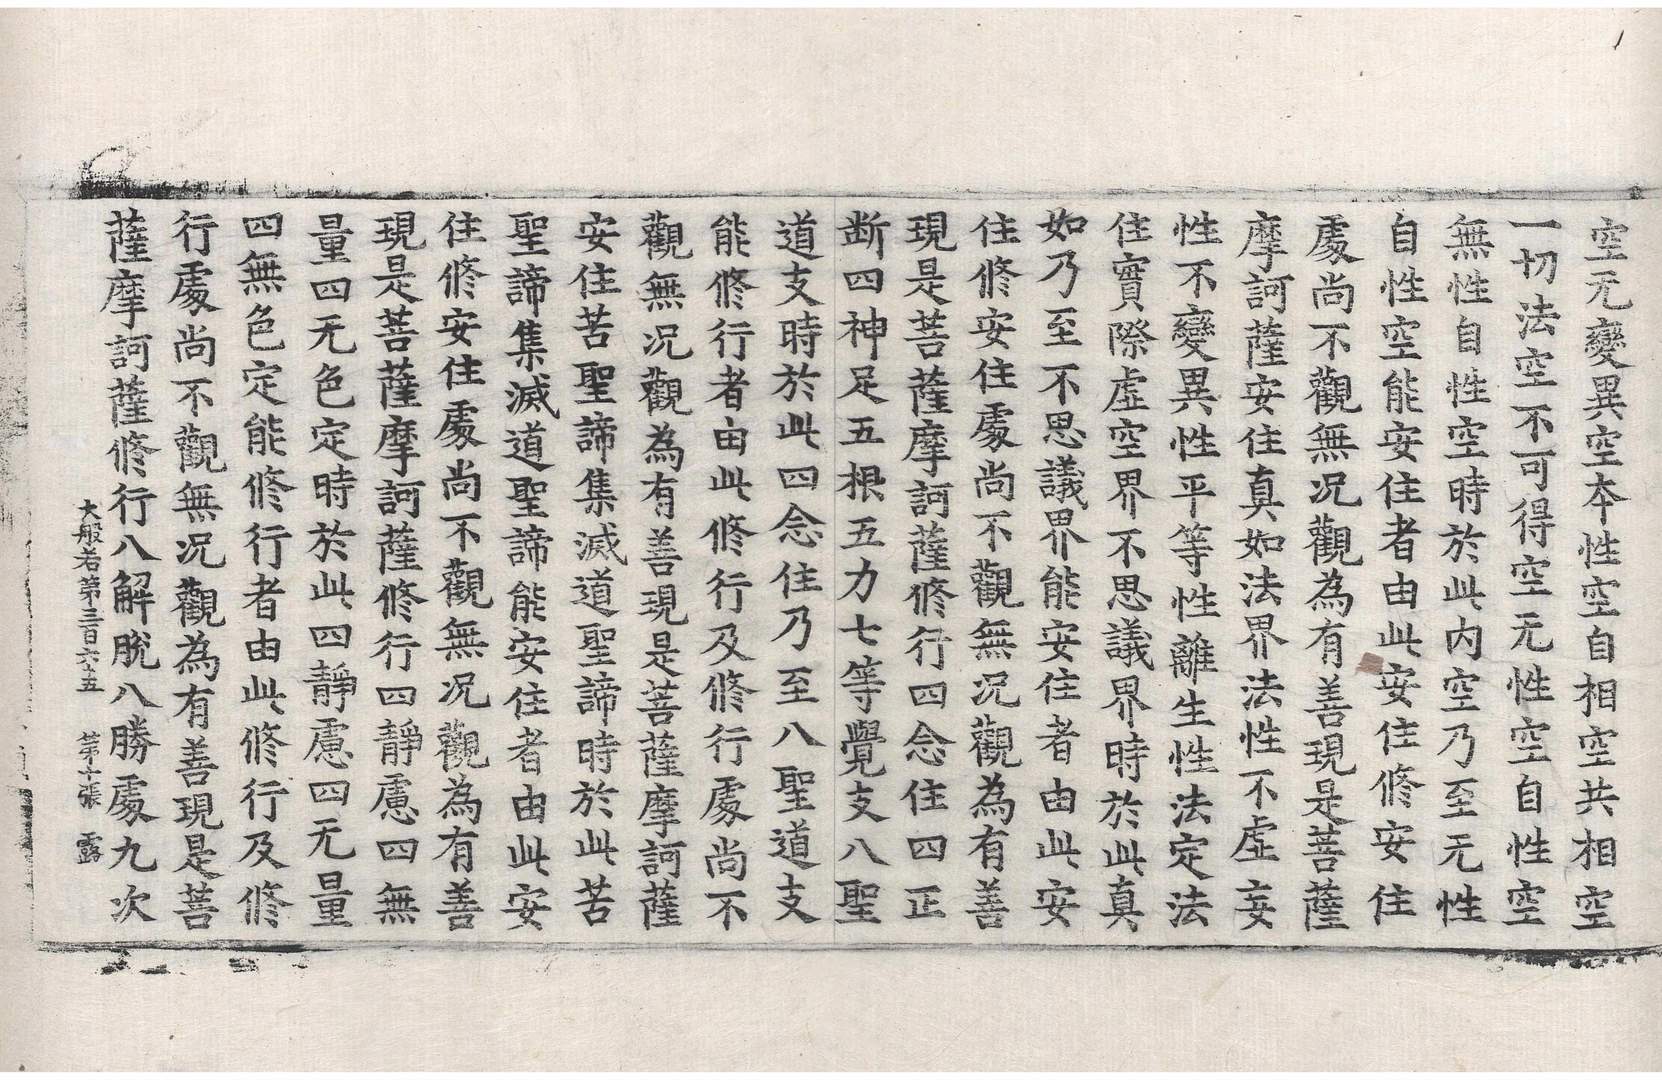 空无變異空本性空自相空共相空
一切法空不可得空无性空自性空
無性自性空時於此内空乃至无性
自性空能安住者由此安住修安住
處尚不觀無况觀為有善現是菩薩
摩訶薩安住真如法界法性不虛妄
性不變異性平等性離生性法定法
住實際虛空界不思議界時於此真
如乃至不思議界能安住者由此安
住修安住處尚不觀無况觀為有善
現是菩薩摩訶薩修行四念住四正
断四神足五根五力七等覺支八聖
道支時於此四念住乃至八聖道支
能修行者由此修行及修行處尚不
觀無况觀為有善現是菩薩摩訶薩
安住苦聖諦集滅道聖諦時於此苦
聖諦集滅道聖諦能安住者由此安
住修安住處尚不觀無况觀為有善
現是菩薩摩訶薩修行四靜慮四無
量四无色定時於此四靜慮四无量
四無色定能修行者由此修行及修
行處尚不觀無况觀為有善現是菩
薩摩訶薩修行八解脫八勝處九次
大般若第三百六十五 第十張 露